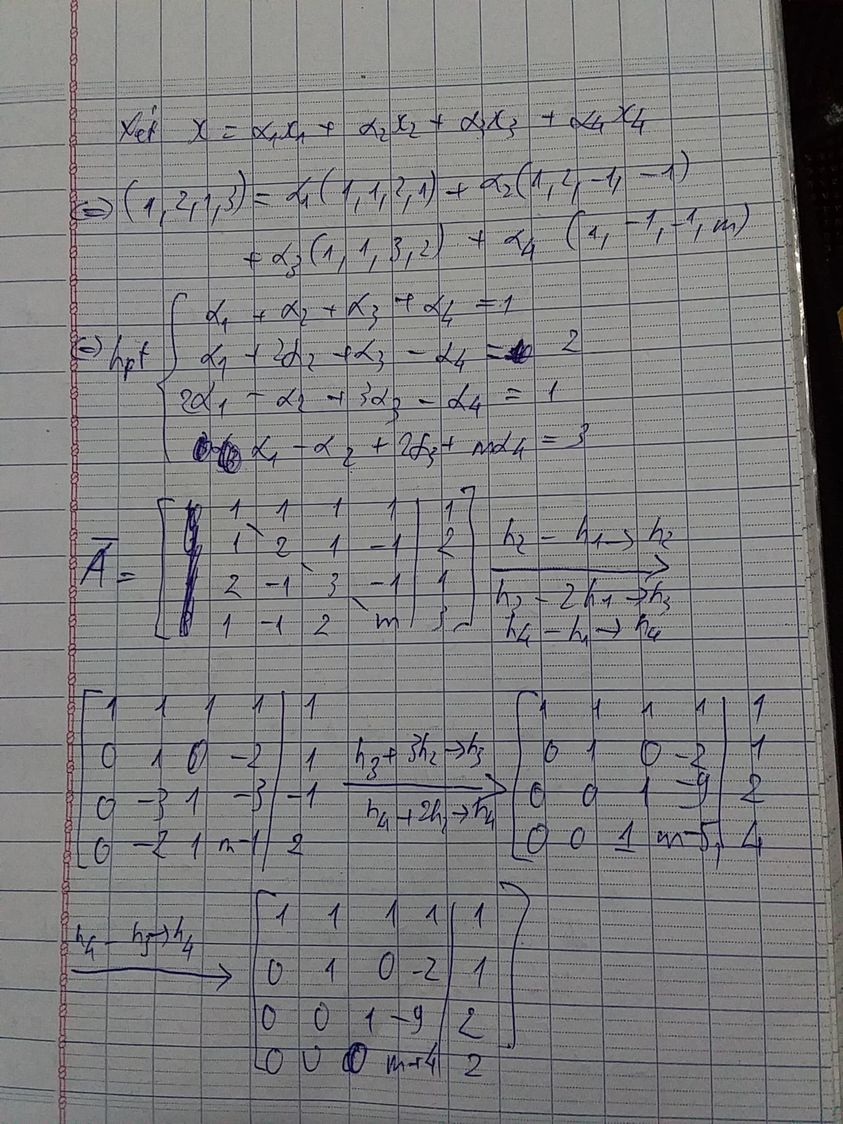 Xét x = α₁x₁ + α₂x₂ + α₃x₃ + α₄x₄
⇔ (1,2,1,3) = α₁(1,1,2,1) + α₂(1,2,-1,-1)
+ α₃(1,1,3,2) + α₄(1,-1,-1,m)
⇔ hpt { α₁ + α₂ + α₃ + α₄ = 1
α₁ + 2α₂ + α₃ - α₄ = 2
2α₁ - α₂ + 3α₃ - α₄ = 1
α₁ - α₂ + 2α₃ + mα₄ = 3
Ā = [ 1 1 1 1 | 1
1 2 1 -1 | 2
2 -1 3 -1 | 1
1 -1 2 m | 3 ]
h₂ - h₁ → h₂
h₃ - 2h₁ → h₃
h₄ - h₁ → h₄
[ 1 1 1 1 | 1
0 1 0 -2 | 1
0 -3 1 -3 | -1
0 -2 1 m-1 | 2
h₃ + 3h₂ → h₃
h₄ + 2h₂ → h₄
[ 1 1 1 1 | 1
0 1 0 -2 | 1
0 0 1 -9 | 2
0 0 1 m-5 | 4
h₄ - h₃ → h₄
[ 1 1 1 1 | 1
0 1 0 -2 | 1
0 0 1 -9 | 2
0 0 0 m+4 | 2 ]